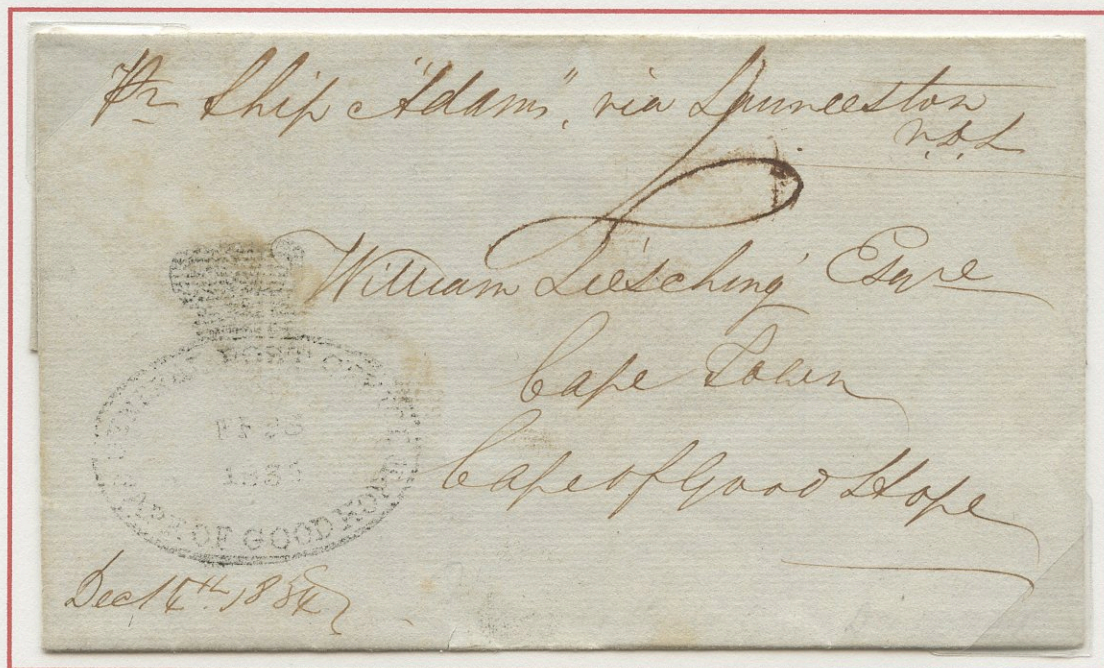 Pr Ship "Adams", via Launceston
V.D.L
William Liesching Esqre
Cape Town
Cape of Good Hope
GENERAL POST OFFICE
CAPE OF GOOD HOPE
Dec 14th 1834